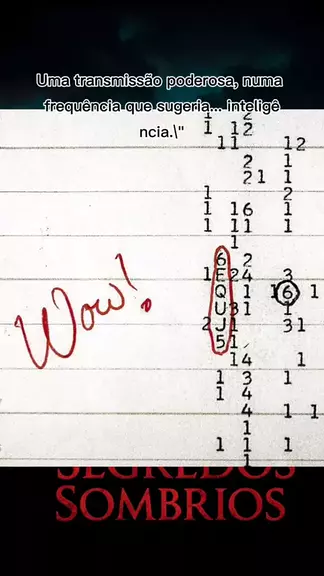 Uma transmissão poderosa, numa
frequência que sugeria... inteligê
ncia.\"
1 2
1 12
11 12
2 1
2 1 1
1 2
1 16 1
1 11 1
1
6 2
1 E 24 3
Q 1 1 6 1
U 31 1
2 J 1 31
5 1
14 1
1 3 1
1 4
4 1 1
1
1 1 1
1
Wow!
SEGREDOS
SOMBRIOS